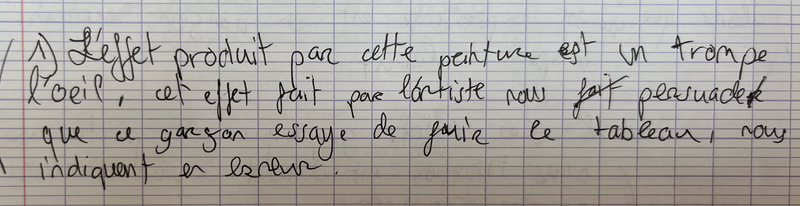 1) L'effet produit par cette peinture est un trompe
l'oeil, cet effet fait par l'artiste nous persuade
que ce garçon essaye de fuir le tableau, nous
indiquent en erreur.